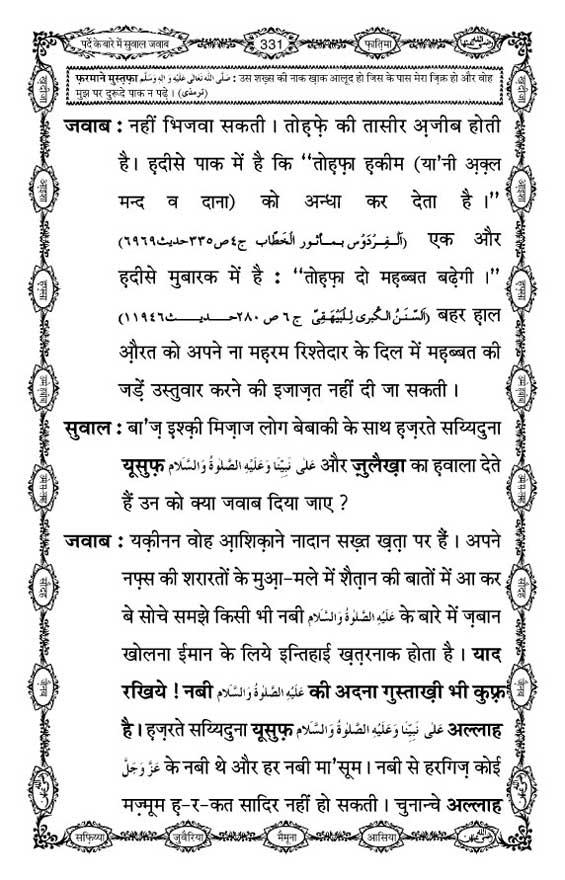 पर्दे के बारे में सुवाल जवाब
331
फ़ातिमा
फ़रमाने मुस्तफ़ा صَلَّى اللّٰهُ تَعَالٰى عَلَيْهِ وَاٰلِهٖ وَسَلَّم : उस शख़्स की नाक ख़ाक आलूद हो जिस के पास मेरा ज़िक्र हो और वोह
मुझ पर दुरूदे पाक न पढ़े। (ترمذی)
जवाब : नहीं भिजवा सकती। तोह़फ़े की तासीर अ़जीब होती
है। ह़दीसे पाक में है कि ‘‘तोह़फ़ा ह़कीम (या'नी अ़क़्ल
मन्द व दाना) को अन्धा कर देता है।’’
(اَلْفِرْدَوْس بمأثور الْخَطَّاب ج٤ص٣٣٥حديث٦٩٦٩) एक और
ह़दीसे मुबारक में है : ‘‘तोह़फ़ा दो मह़ब्बत बढ़ेगी।’’
(اَلسّنَنُ الْكُبرى لِلْبَيْهَقِىّ ج٦ ص ٢٨٠حديث١١٩٤٦) बहर ह़ाल
औ़रत को अपने ना मह़रम रिश्तेदार के दिल में मह़ब्बत की
जड़ें उस्तुवार करने की इजाज़त नहीं दी जा सकती।
सुवाल : बा'ज़ इश्क़ी मिज़ाज लोग बेबाकी के साथ ह़ज़रते सय्यिदुना
यूसुफ़ عَلٰى نَبِيِّنَا وَعَلَيْهِ الصَّلٰوةُ وَالسَّلَام और ज़ुलैख़ा का ह़वाला देते
हैं उन को क्या जवाब दिया जाए ?
जवाब : यक़ीनन वोह आ़शिक़ाने नादान सख़्त ख़त़ा पर हैं। अपने
नफ़्स की शरारतों के मुआ़-मले में शैत़ान की बातों में आ कर
बे सोचे समझे किसी भी नबी عَلَيْهِ الصَّلٰوةُ وَالسَّلَام के बारे में ज़बान
खोलना ईमान के लिये इन्तिहाई ख़त़रनाक होता है। याद
रखिये ! नबी عَلَيْهِ الصَّلٰوةُ وَالسَّلَام की अदना गुस्ताख़ी भी कुफ़्र
है। ह़ज़रते सय्यिदुना यूसुफ़ عَلٰى نَبِيِّنَا وَعَلَيْهِ الصَّلٰوةُ وَالسَّلَام अल्लाह
عَزَّوَجَلَّ के नबी थे और हर नबी मा'सूम। नबी से हरगिज़ कोई
मज़्मूम ह़-र-कत सादिर नहीं हो सकती। चुनान्चे अल्लाह
सफ़िय्या
जुवैरिया
मैमूना
आसिया